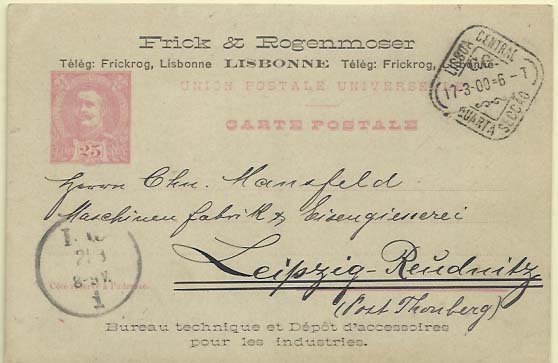 Frick & Rogenmoser
Télég: Frickrog, Lisbonne LISBONNE Télég: Frickrog,
UNION POSTALE UNIVERSELLE
CARTE POSTALE
LISBOA CENTRAL
17-3-00=6-T
QUARTA SECÇÃO
25
Herrn Chn. Mansfeld
Maschinenfabrik & Eisengiesserei
Leipzig-Reudnitz
(Post Thonberg)
Côté réservé à l'adresse.
1
Bureau technique et Dépôt d'accessoires
pour les industries.